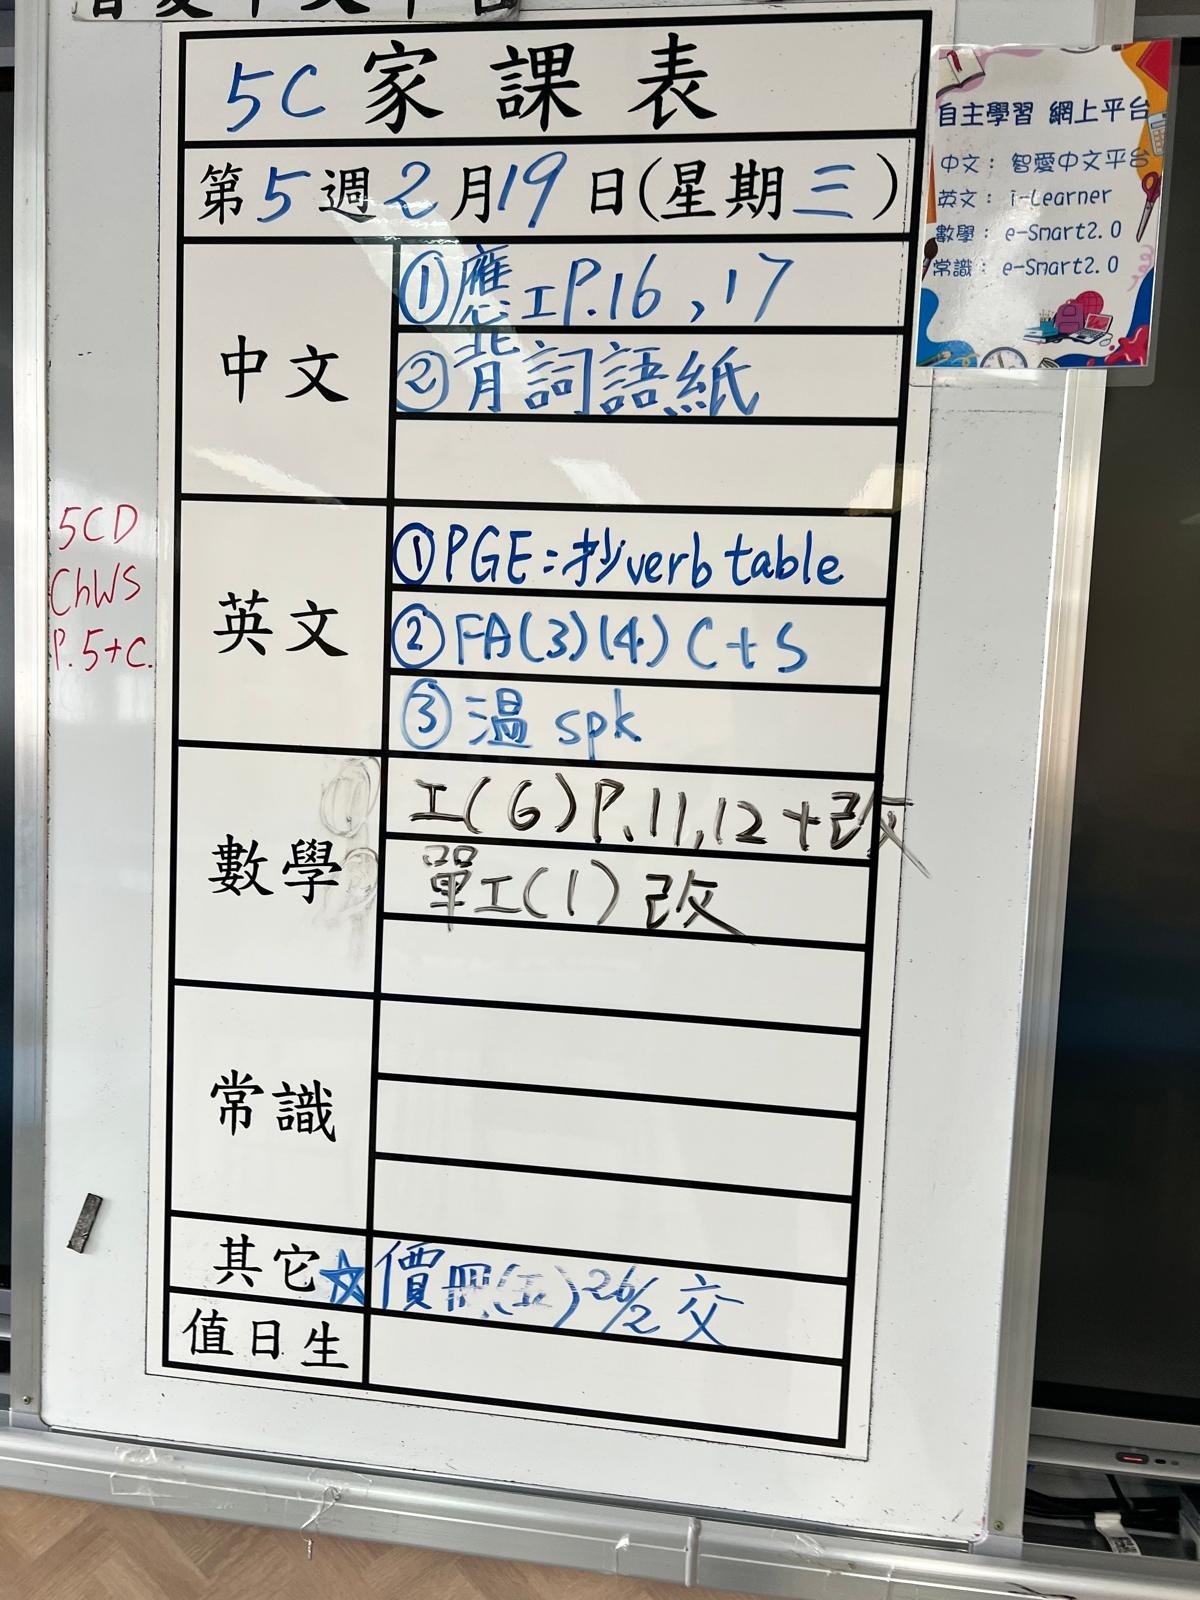 5C 家課表
第5週2月19日(星期三)
中文
①應工P.16,17
②背詞語紙
英文
①PGE:抄verb table
②FA(3)(4) C+S
③溫 spk
數學
工(6)P.11,12+改
單工(1)改
常識
其它
☆價冊(五)26/2交
值日生
5CD
ChWS
P.5+C.
自主學習 網上平台
中文: 智愛中文平台
英文: i-Learner
數學: e-Smart2.0
常識: e-Smart2.0